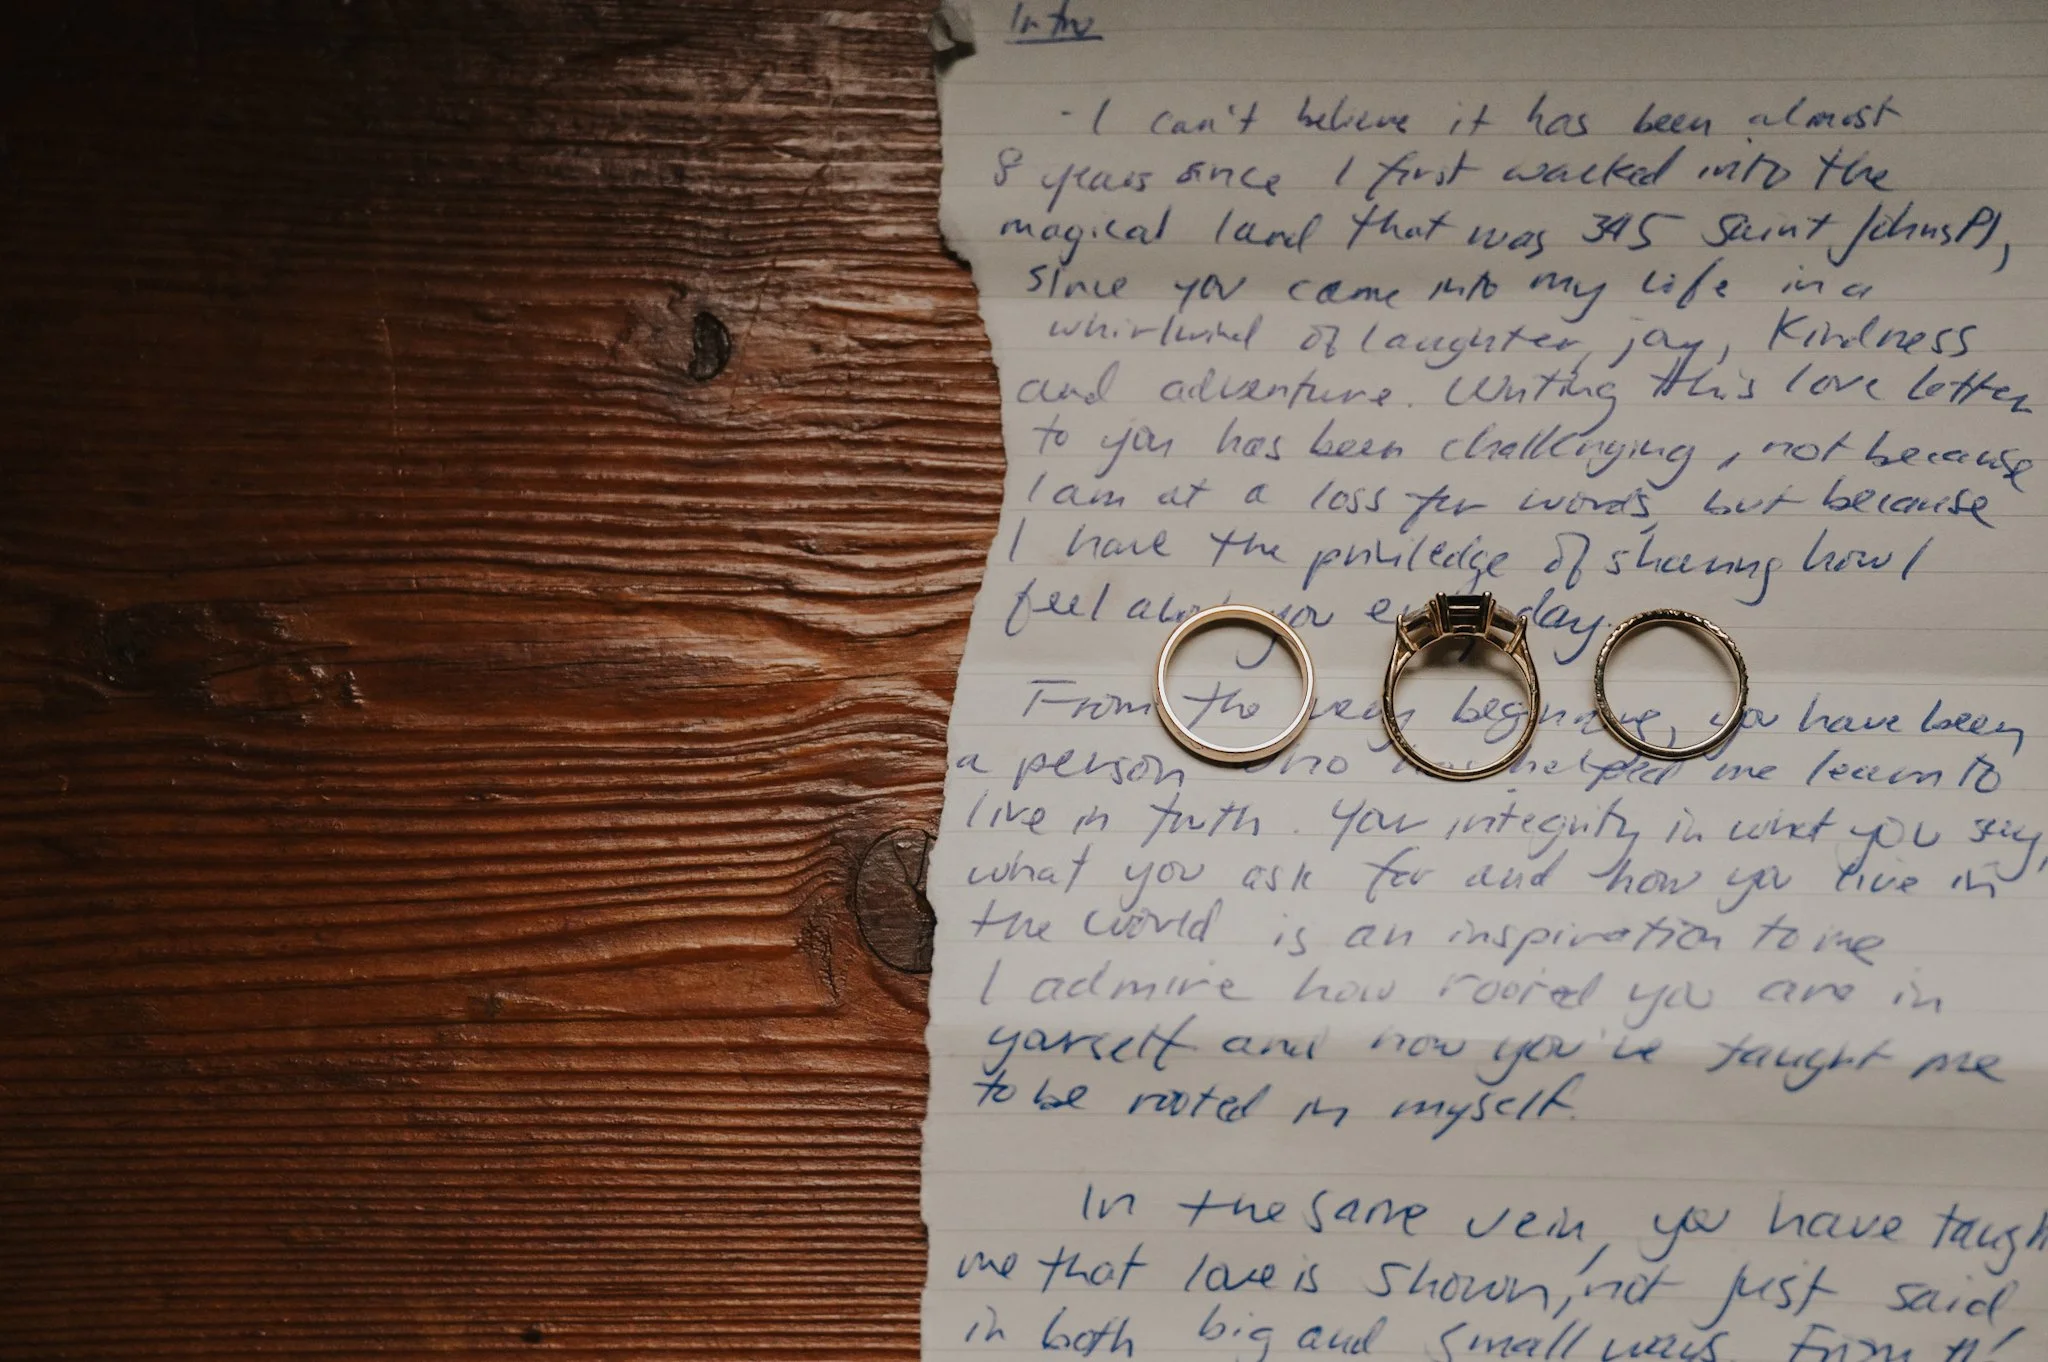 Intro
- I can't believe it has been almost
8 years since I first walked into the
magical land that was 345 Saint Johns Pl,
since you came into my life in a
whirlwind of laughter, joy, Kindness
and adventure. Writing this love letter
to you has been challenging, not because
I am at a loss for words, but because
I have the priviledge of sharing how I
feel about you every day.
From the very beginning, you have been
a person who has helped me learn to
live in truth. Your integrity in what you say,
what you ask for and how you live in
the world is an inspiration to me
I admire how rooted you are in
yourself and how you've taught me
to be rooted in myself.
In the same vein, you have taugh
me that love is shown, not just said,
in both big and small ways. From